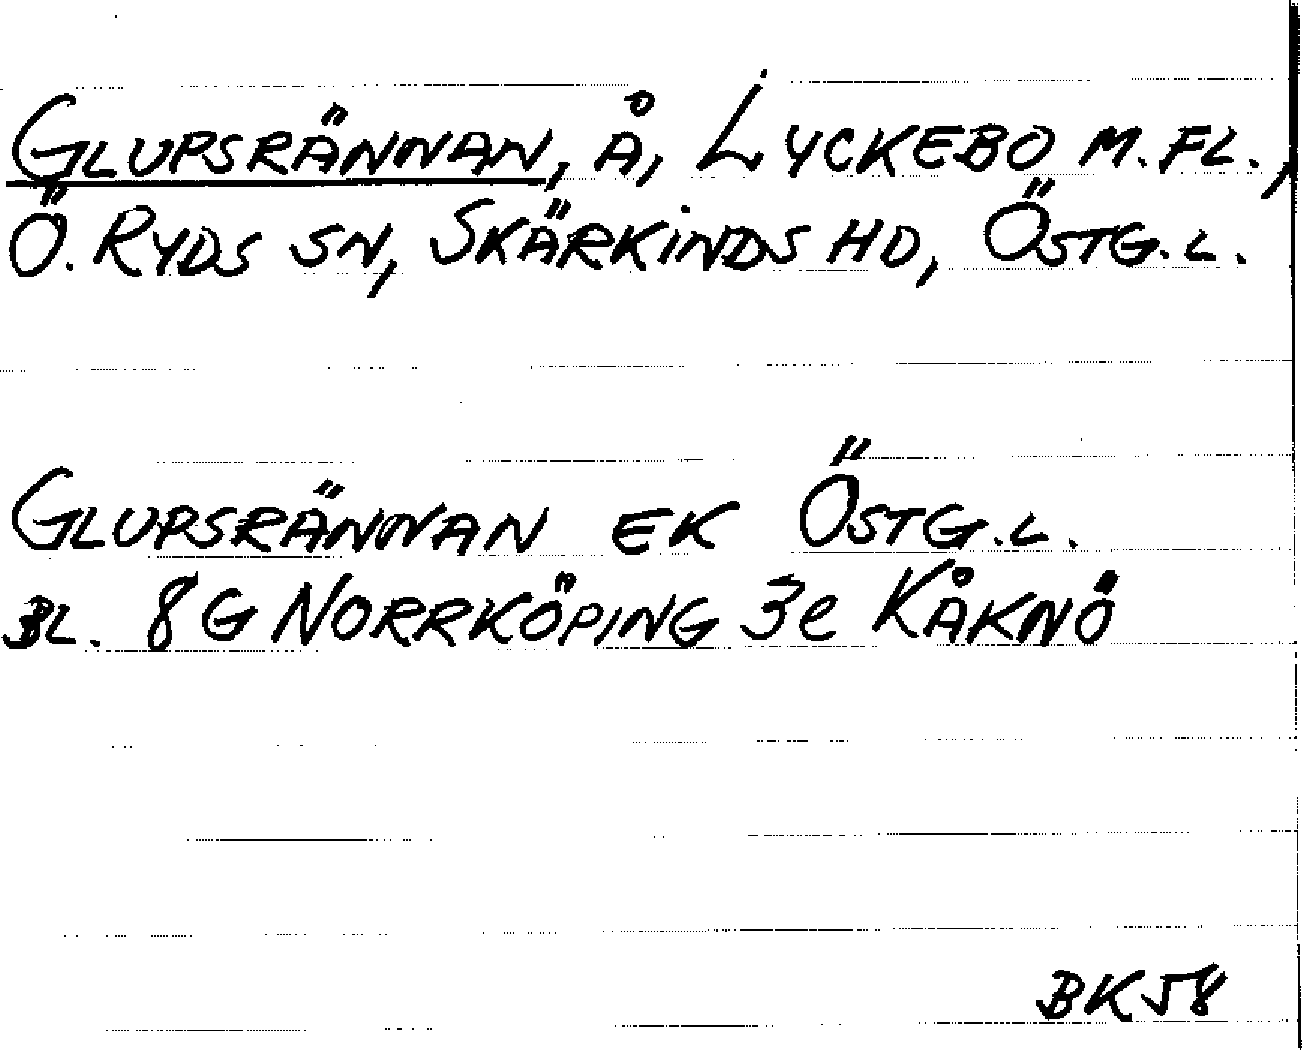 GLUPSRÄNNAN, Å, LYCKEBO M. FL.,
Ö. RYDS SN, SKÄRKINDS HD, ÖSTG. L.
GLUPSRÄNNAN EK ÖSTG. L.
BL. 8G NORRKÖPING 3e KÅKNÖ
BK58